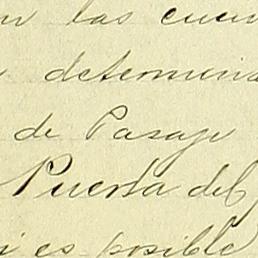 las cuen
determina
de Pasaje
Puerta del
es posible